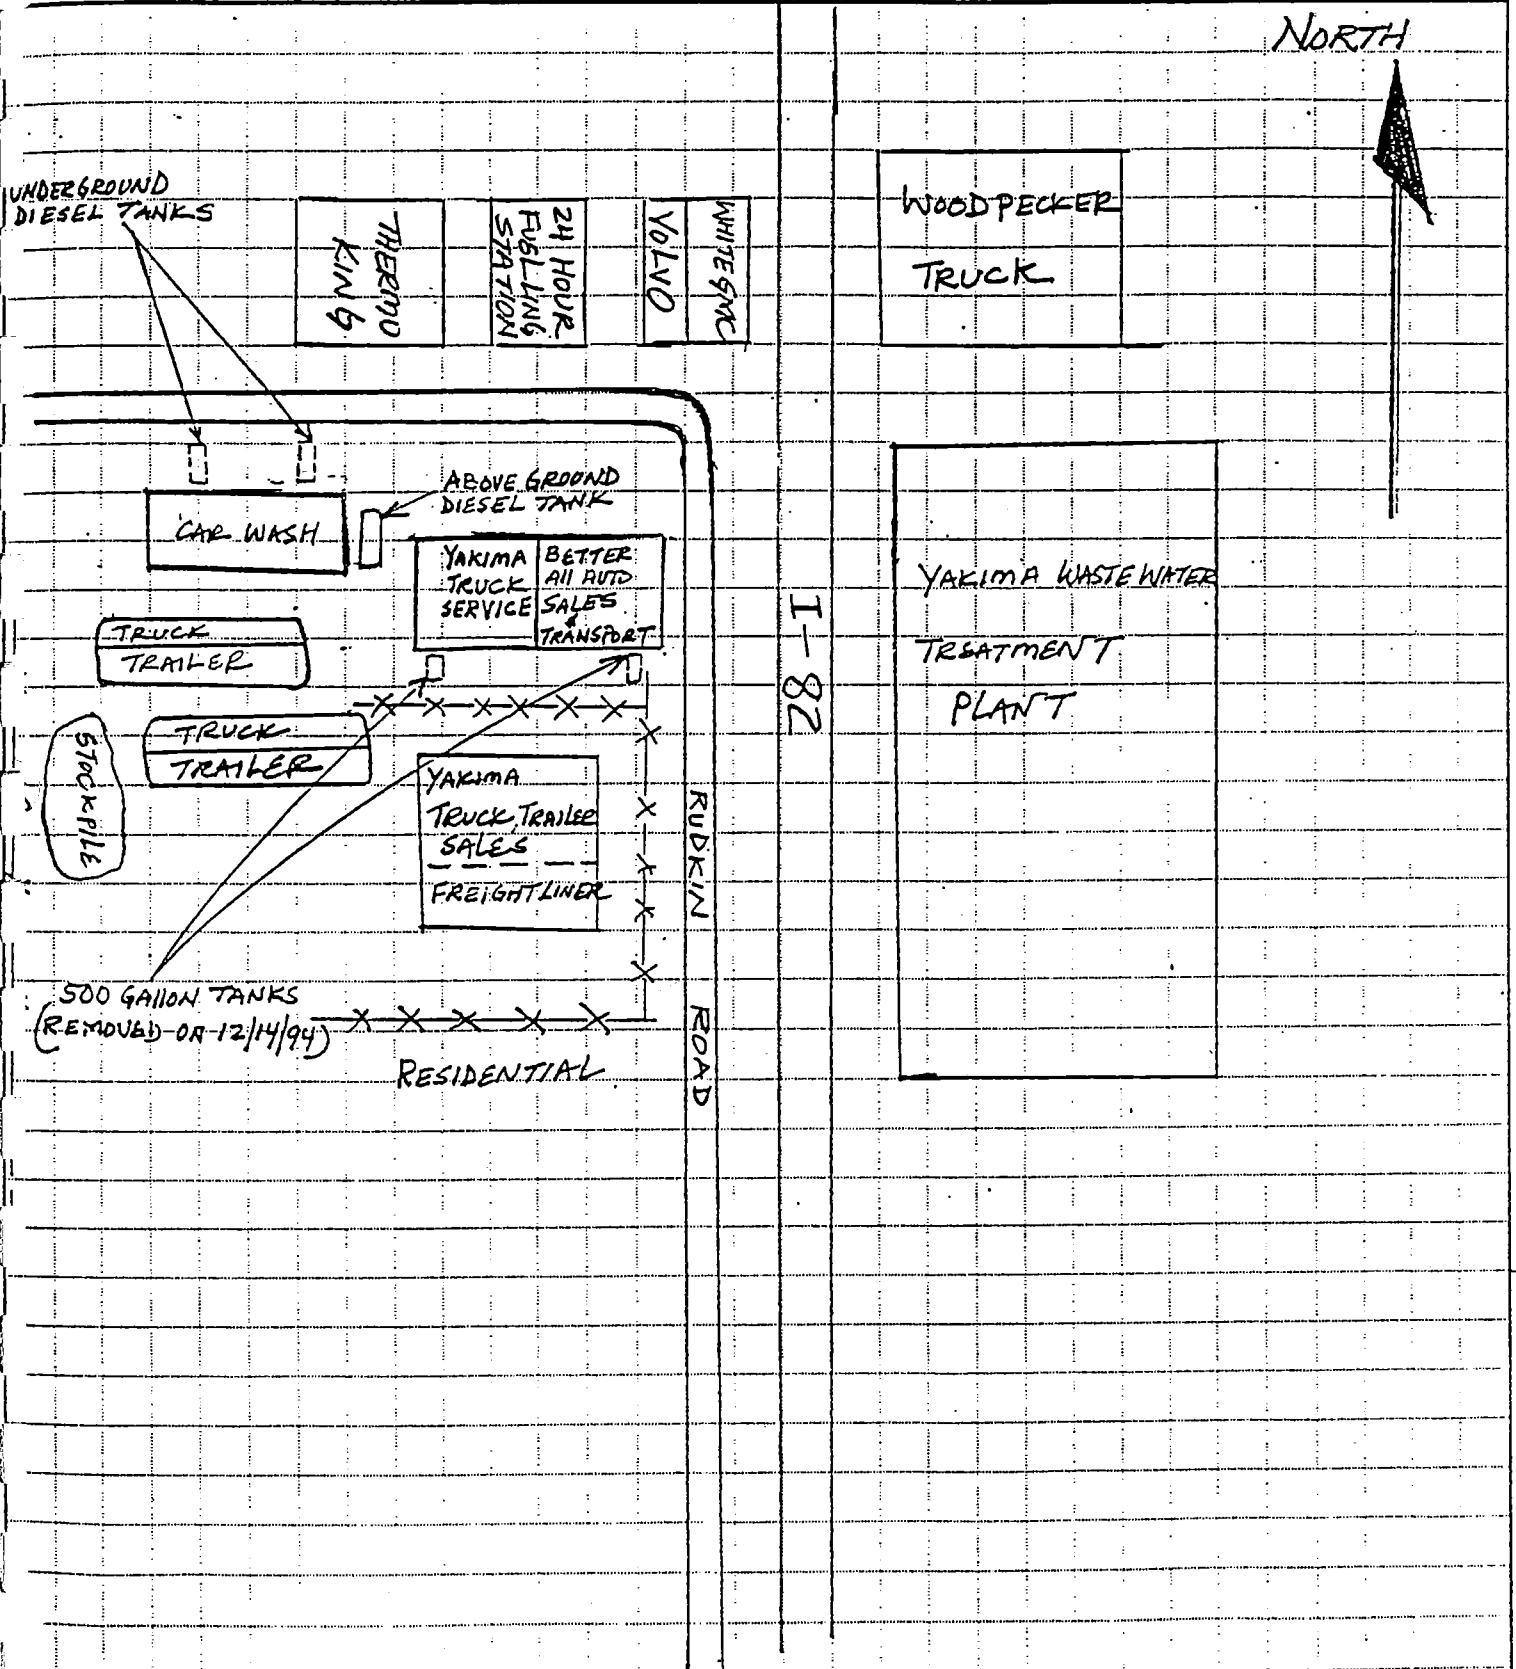 NORTH
UNDERGROUND
DIESEL TANKS
THERMO
KING
24 HOUR
FUELLING
STATION
VOLVO
WHITE GMC
WOODPECKER
TRUCK
ABOVE GROUND
DIESEL TANK
CAR WASH
YAKIMA
TRUCK
SERVICE
BETTER
All AUTO
SALES
&
TRANSPORT
TRUCK
TRAILER
TRUCK
TRAILER
STOCKPILE
YAKIMA
TRUCK, TRAILER
SALES
FREIGHTLINER
I-82
YAKIMA WASTEWATER
TREATMENT
PLANT
RUDKIN ROAD
500 GAllON TANKS
(REMOVED ON 12/14/94)
RESIDENTIAL